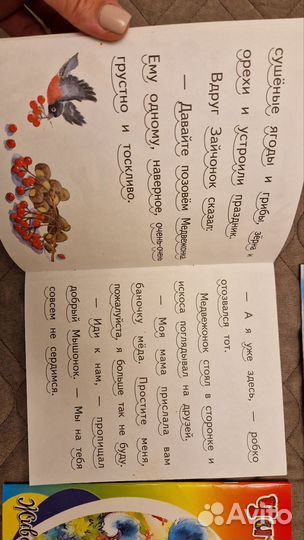 сушёные ягоды и грибы, зёрна и
орехи и устроили праздник.
Вдруг Зайчонок сказал:
— Давайте позовём Медвежонка.
Ему одному, наверное, очень-очень
грустно и тоскливо.
— А я уже здесь, — робко
отозвался тот.
Медвежонок стоял в сторонке и
искоса поглядывал на друзей.
— Моя мама прислала вам
баночку мёда. Простите меня,
пожалуйста, я больше так не буду.
— Иди к нам, — пропищал
добрый Мышонок. — Мы на тебя
совсем не сердимся.
Avito